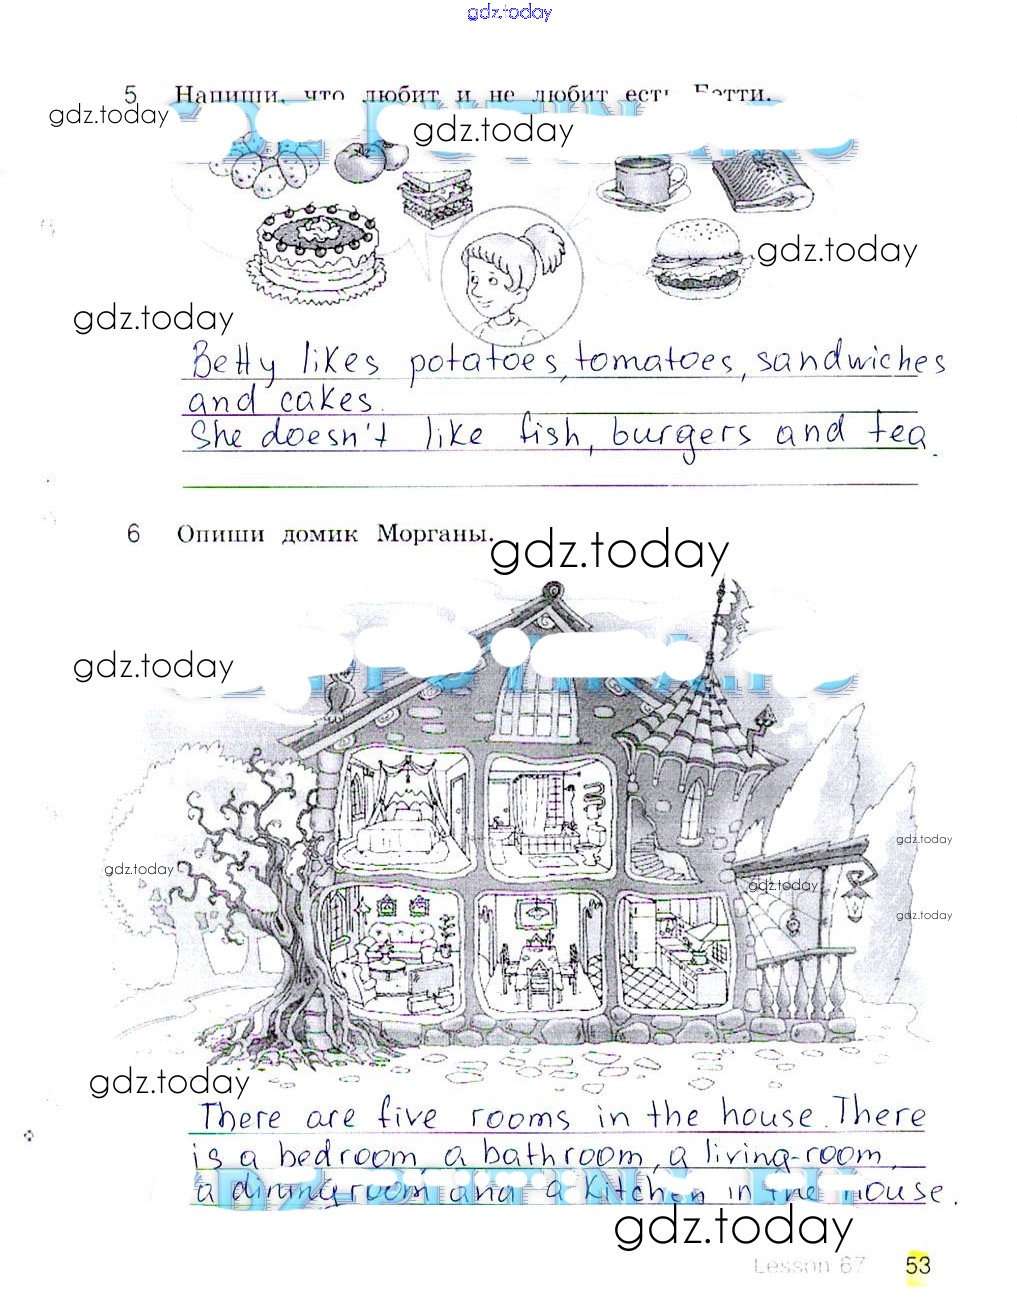 gdz.today
5 Напиши, что любит и не любит есть Бетти.
gdz.today
gdz.today
gdz.today
gdz.today
Betty likes potatoes, tomatoes, sandwiches
and cakes.
She doesn't like fish, burgers and tea.
6 Опиши домик Морганы.
gdz.today
gdz.today
gdz.today
gdz.today
gdz.today
gdz.today
gdz.today
There are five rooms in the house. There
is a bedroom, a bathroom, a living-room,
a dining room and a kitchen in the house.
gdz.today
Lesson 67 53